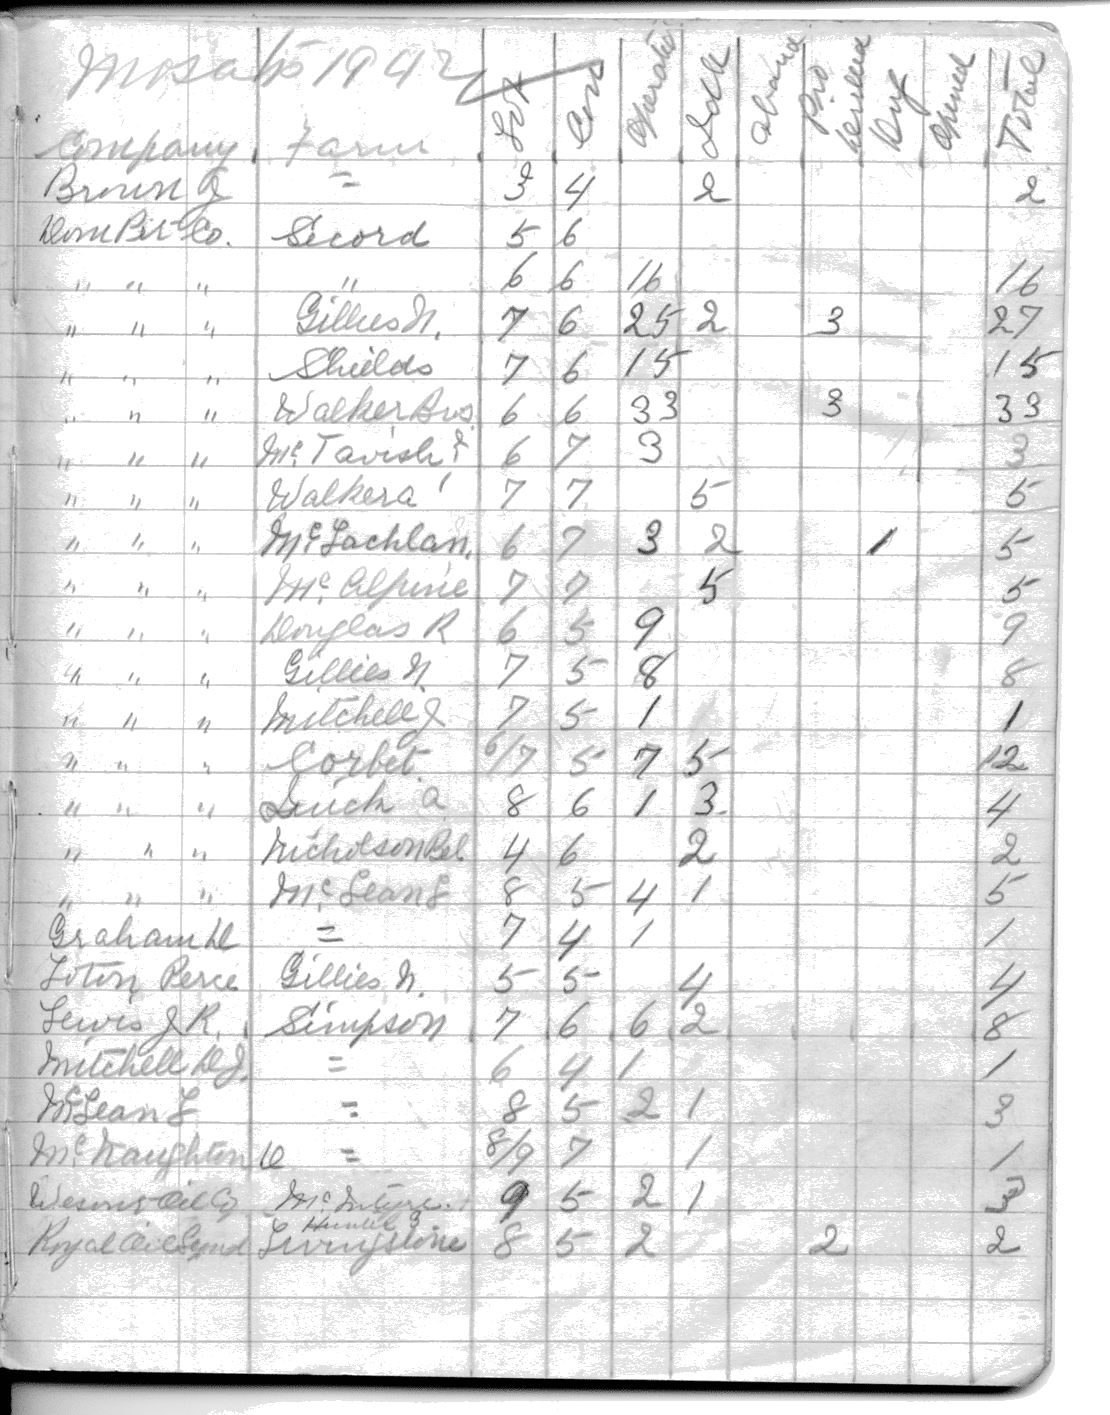 Mosa 1942
Company Farm Lot Con Operated Idle Aband Pro Drilled Dry Opened Total
Brown J = 3 4 2 2
Dom Pet Co. Secord 5 6
" " " " 6 6 16 16
" " " Gillies N. 7 6 25 2 3 27
" " " Shields 7 6 15 15
" " " Walker Bros. 6 6 33 3 33
" " " Mc Tavish 6 7 3 3
" " " Walker a 7 7 5 5
" " " Mc Lachlan. 6 7 3 2 1 5
" " " Mc. Alpine 7 7 5 5
" " " Douglas R 6 5 9 9
" " " Gillies N. 7 5 8 8
" " " Mitchell J 7 5 1 1
" " " Corbet. 6/7 5 7 5 12
" " " a 8 6 1 3. 4
" " " Nicholson 4 6 2 2
" " " Mc Lean L 8 5 4 1 5
Graham D = 7 4 1 1
Perce Gillies N. 5 5 4 4
Lewis J R. Simpson 7 6 6 2 8
Mitchell D J. = 6 4 1 1
Mc Lean L = 8 5 2 1 3
Mc Naughton D = 8/9 7 1 1
Oil Co Mc Intyre. 9 5 2 1 3
Royal Oil Synd Livingstone 8 5 2 2 2